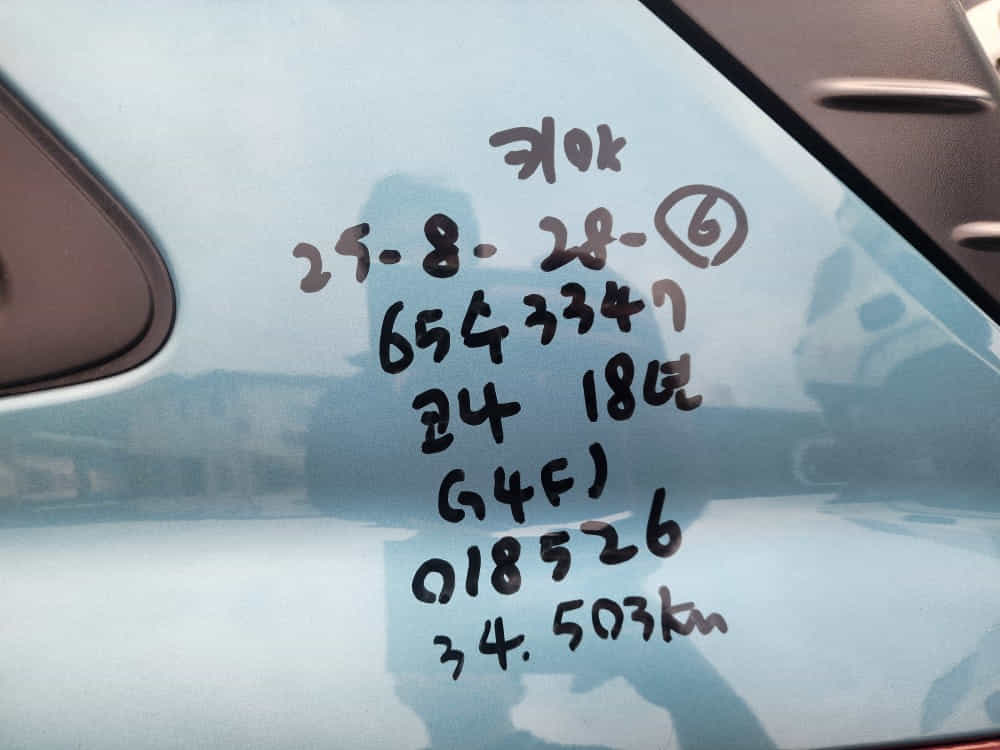 키야
25-8-28-⑥
65수3347
코나 18년
G4FJ
018526
34.503km